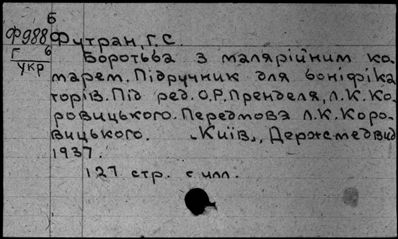 Б
Ф988 Футран, Г. С.
Г 6
укр
Боротьба з малярійним ко-
марем. Підручник для боніфіка
торів. Під ред. О.Р. Пренделя, Л.К. Ко-
ровицького. Передмова Л.К. Коро-
вицького. „Київ", Держмедвид
1937.
127 стр. с илл.